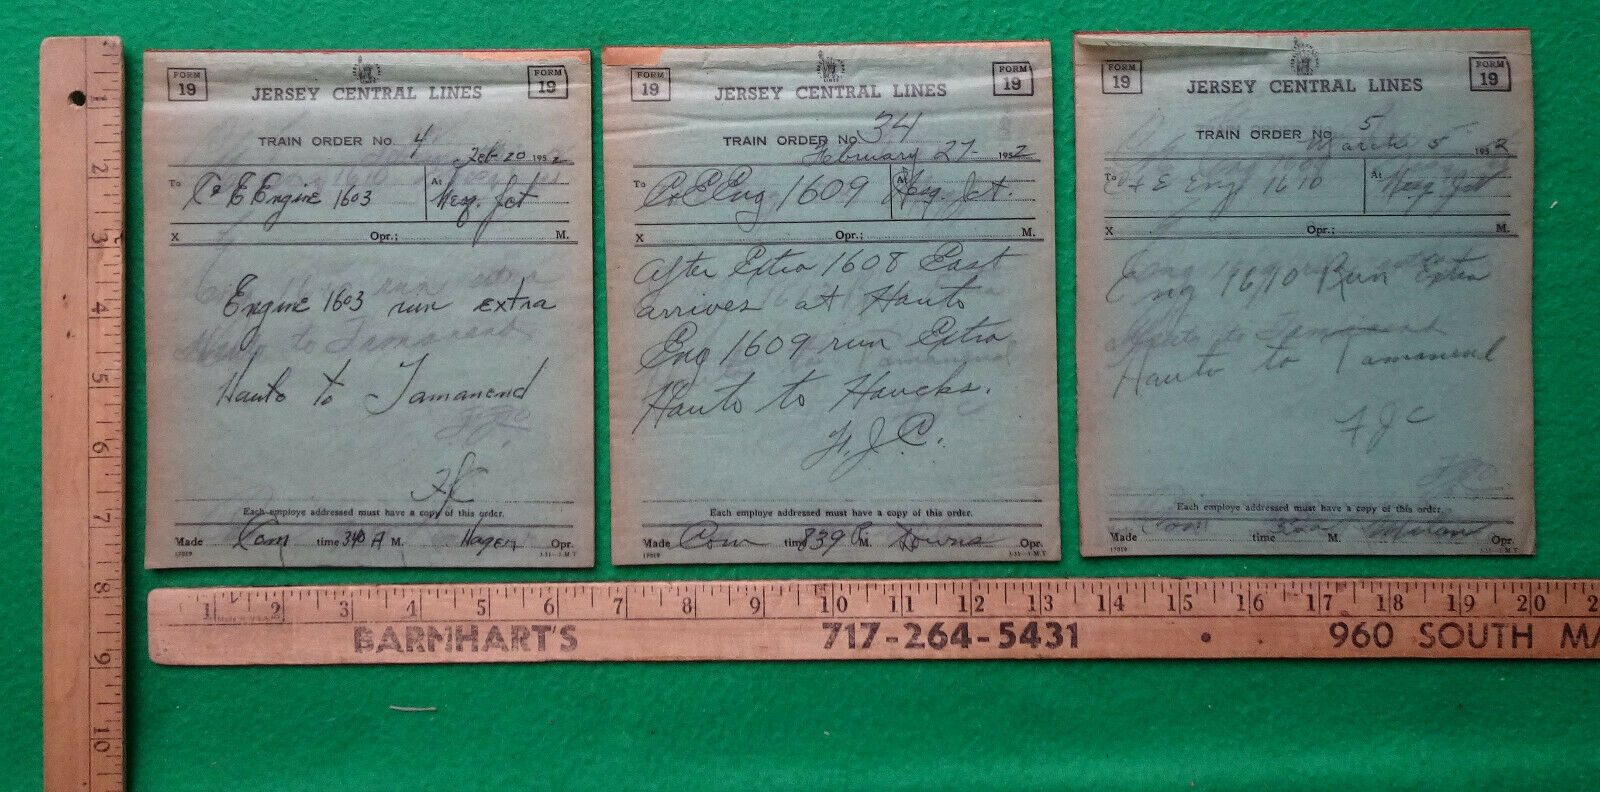 FORM 19
FORM 19
JERSEY CENTRAL LINES
TRAIN ORDER No. 4
Feb 20 1952
To C & E Engine 1603 At Nesq. Jct
X Opr.; M.
Engine 1603 run extra
Hauto to Tamanend
FJC
Each employe addressed must have a copy of this order.
Made Com time 340 A M. Hagen Opr.
17019 3-51—J.M.T
FORM 19
FORM 19
JERSEY CENTRAL LINES
TRAIN ORDER No. 34
February 27 1952
To C&E Eng 1609 At Nesq. Jct.
X Opr.; M.
After Extra 1608 East
arrives at Hauto
Eng 1609 run Extra
Hauto to Haucks.
F.J.C.
Each employe addressed must have a copy of this order.
Made Com time 839 P M. Downs Opr.
FORM 19
FORM 19
JERSEY CENTRAL LINES
TRAIN ORDER No 5
March 5 1952
To C & E Eng 1610 At Nesq. Jct
X Opr.; M.
Eng 1610 Run Extra
Hauto to Tamanend
FJC
Each employe addressed must have a copy of this order.
Made Com time M. Opr.
17019 3-51—J.M.T
1 2 3 4 5 6 7 8 9 10
1 2 3 4 5 6 7 8 9 10 11 12 13 14 15 16 17 18 19 20 2
BARNHART'S 717-264-5431 960 SOUTH MA